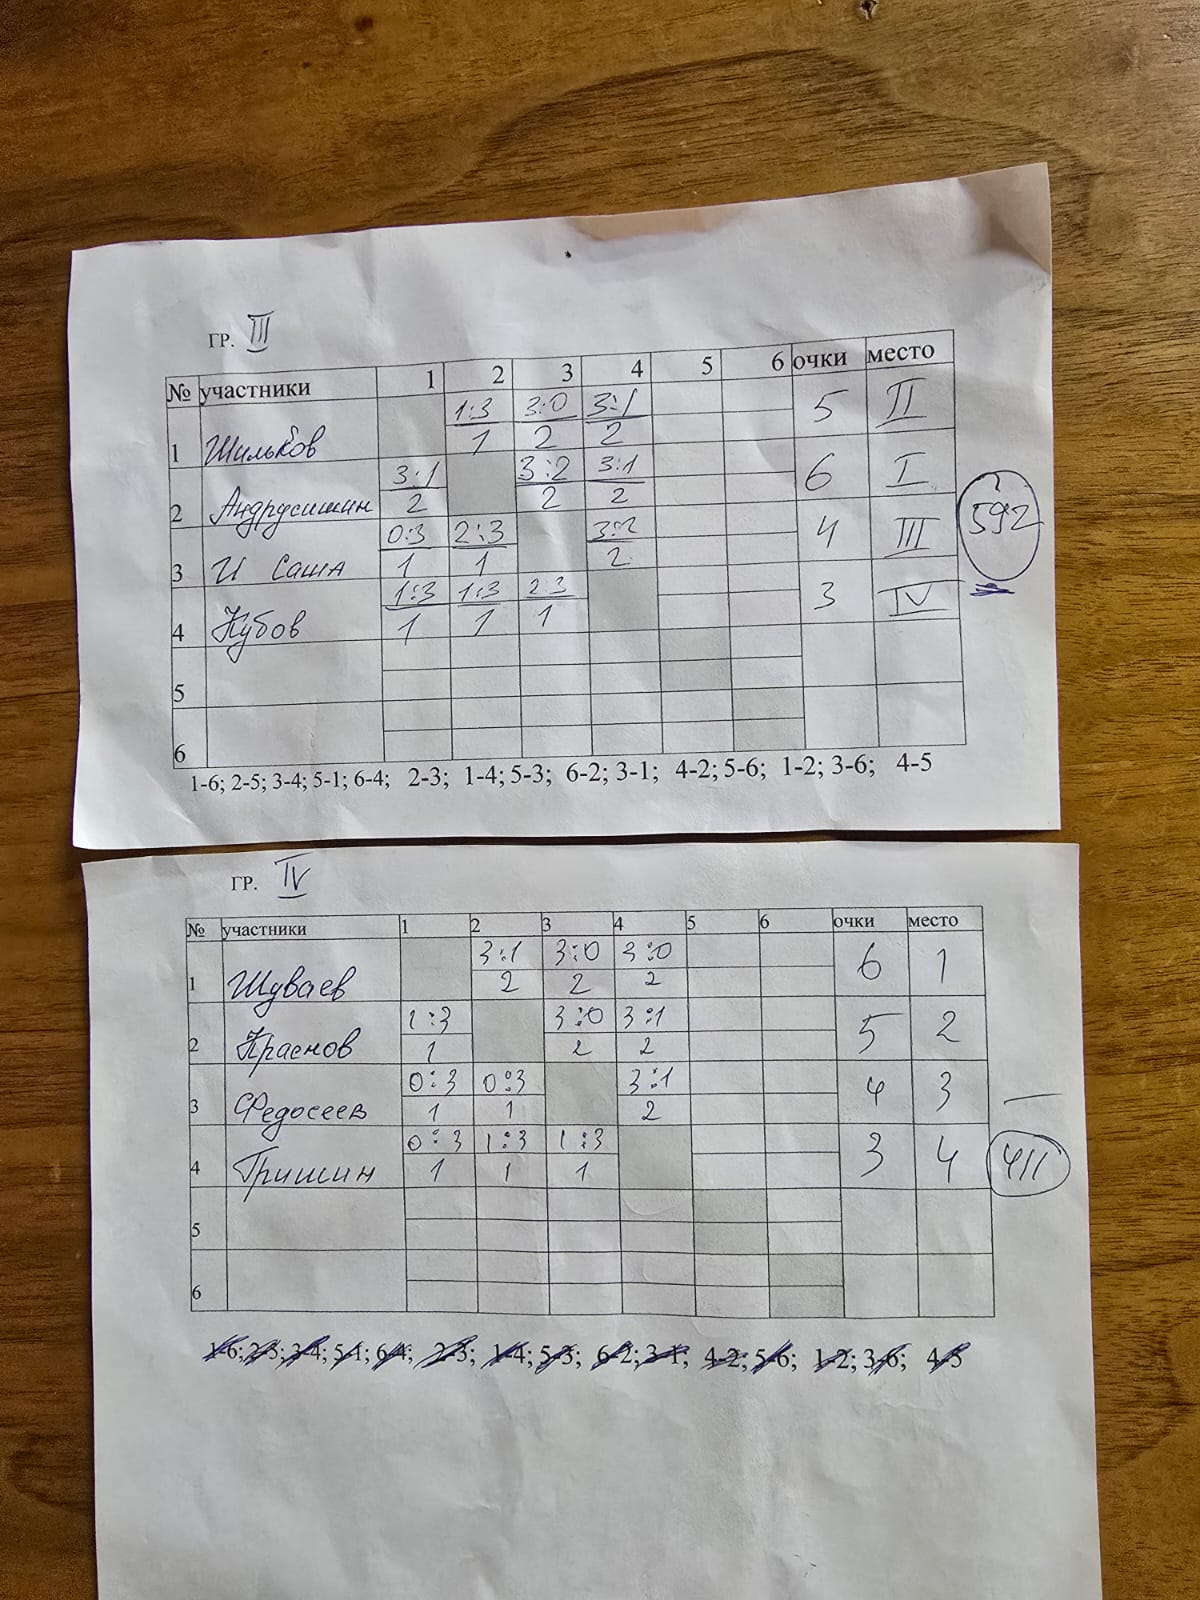 ГР. III
№ участники 1 2 3 4 5 6 очки место
1:3 3:0 3:1
1 Шильков 1 2 2 5 II
3:1 3:2 3:1
2 Андрусишин 2 2 2 6 I
592
0:3 2:3 3:2
3 И Саша 1 1 2 4 III
1:3 1:3 2:3
4 Кубов 1 1 1 3 IV
5
6
1-6; 2-5; 3-4; 5-1; 6-4; 2-3; 1-4; 5-3; 6-2; 3-1; 4-2; 5-6; 1-2; 3-6; 4-5
ГР. IV
№ участники 1 2 3 4 5 6 очки место
3:1 3:0 3:0
1 Шуваев 2 2 2 6 1
1:3 3:0 3:1
2 Краснов 1 2 2 5 2
0:3 0:3 3:1
3 Федосеев 1 1 2 4 3
0:3 1:3 1:3
4 Гришин 1 1 1 3 4
5
6
1-6; 2-5; 3-4; 5-1; 6-4; 2-3; 1-4; 5-3; 6-2; 3-1; 4-2; 5-6; 1-2; 3-6; 4-5